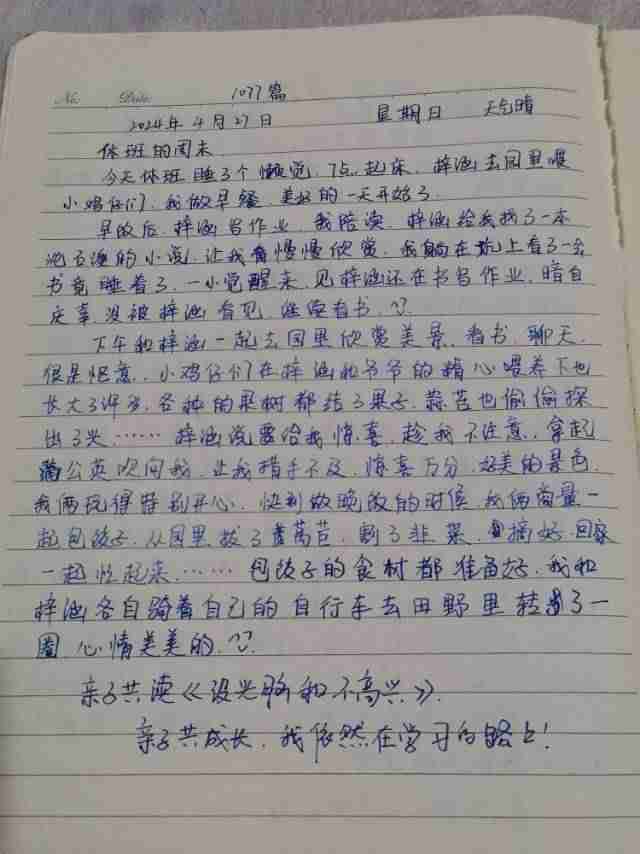 No. Date. 1077篇
2024年4月27日 星期日 天气晴
休班的周末
今天休班睡了个懒觉,7点起床,梓涵去园里喂
小鸡仔们,我做早餐,美好的一天开始了
早饭后,梓涵写作业,我陪读,梓涵给我找了一本
她看过的小说,让我慢慢欣赏,我躺在炕上看了一会
书竟睡着了,一小觉醒来,见梓涵还在书写作业,暗自
庆幸,没被梓涵看见,继续看书,
下午和梓涵一起去园里欣赏美景,看书,聊天,
很是惬意,小鸡仔们在梓涵和爷爷的精心喂养下也
长大了许多,各种的果树都结了果子,蒜苔也偷偷探
出了头……梓涵说要给我惊喜,趁我不注意,拿起
蒲公英吹向我,让我措手不及,惊喜万分,好美的景色,
我俩玩得特别开心,快到做晚饭的时候,我俩商量一
起包饺子,从园里拔了莴苣,割了韭菜,摘好,回家
一起忙起来……包饺子的食材都准备好,我和
梓涵各自骑着自己的自行车去田野里转了一
圈,心情美美的,
亲子共读《没头脑和不高兴》.
亲子共成长,我依然在学习的路上!